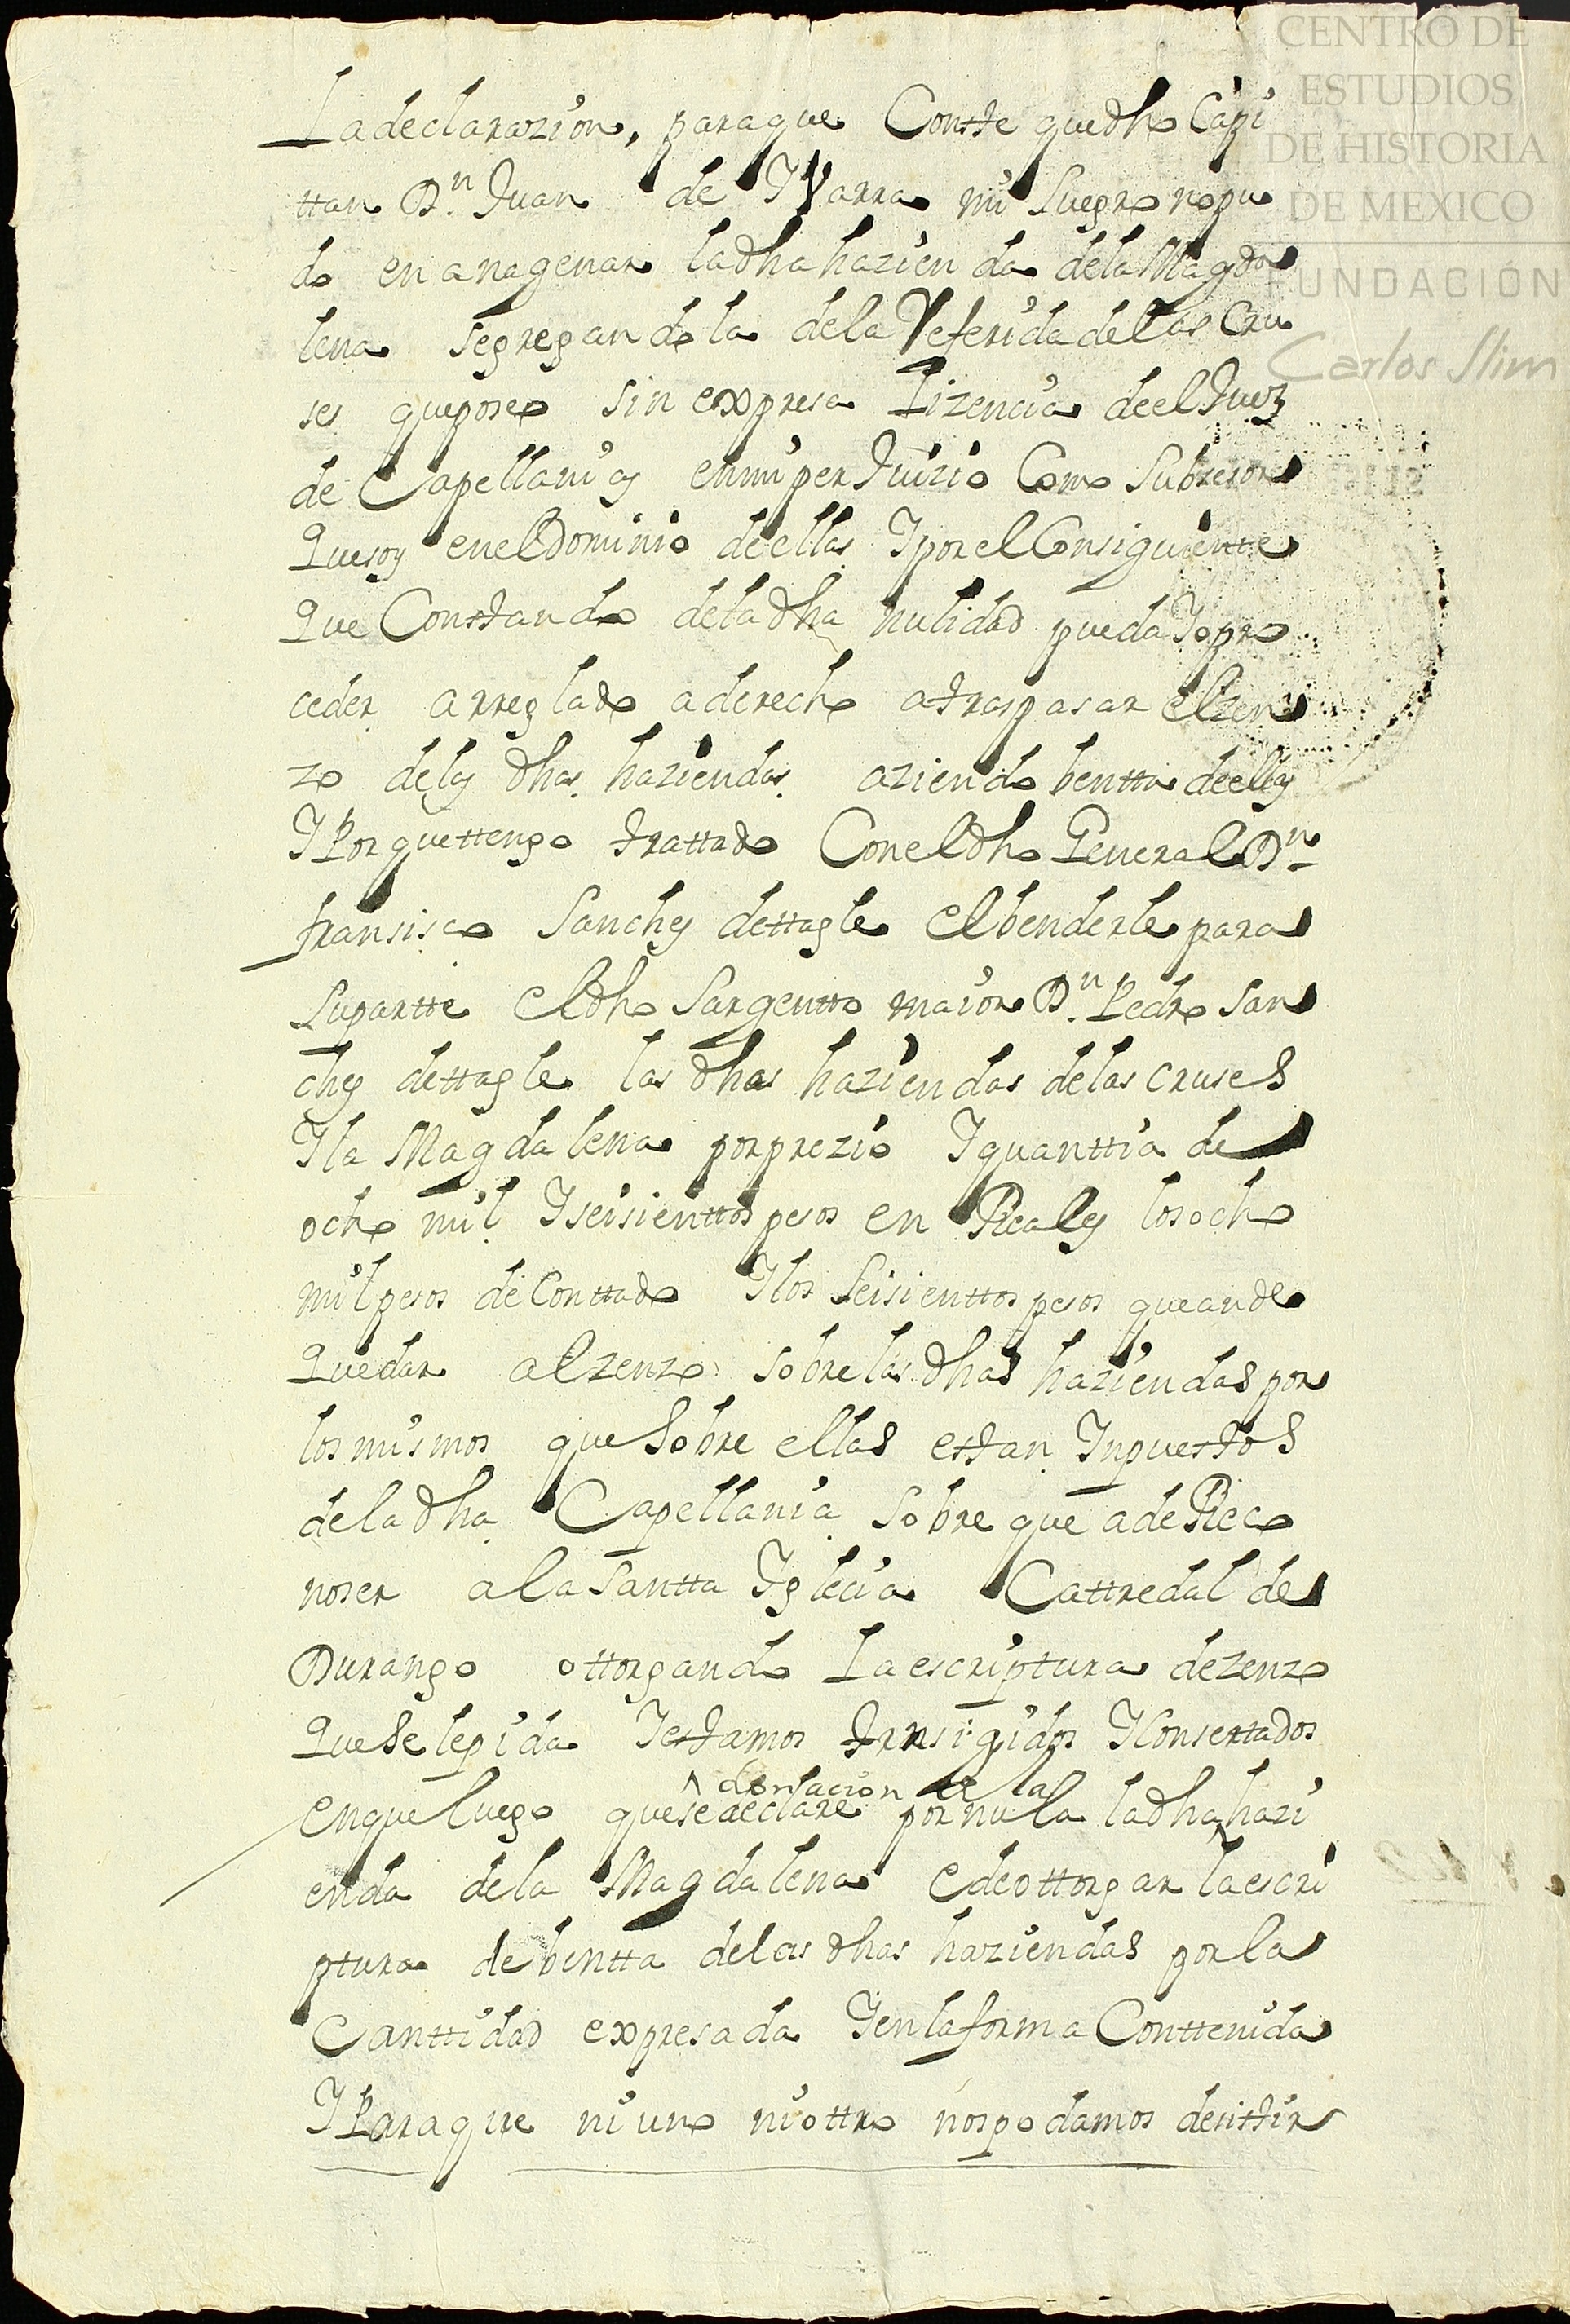 CENTRO DE
ESTUDIOS
DE HISTORIA
DE MEXICO
FUNDACIÓN
Carlos Slim
La declarazion, para que Conste que dho Capi
ttan Dn. Juan de Yvarra mi Suegro no pu
do enanagenar la dha hazienda de la Magda
lena segregandola de la Referida de las Cru
ses que poseo sin expresa Lizencia de el Juez
de Capellanias en mi perJuizio Como Subsesor
Que soy en el Dominio de ellas Y por el Consiguiente
Que Constando de la dha nulidad pueda Yo pro
ceder arreglado a derecho a traspasar el zen
zo de las dhas haziendas aziendo bentta de ellas
Y Por que ttengo trattado Con el dho General Dn
fransisco Sanches de ttagle el benderle para
Su partte el dho Sargentto maior Dn. Pedro San
ches de ttagle las dhas haziendas de las cruses
Y la Magdalena por prezio Y quanttia de
ocho mil Y seisienttos pesos en Reales los ocho
mil pesos de Conttado Y los Seisienttos pesos que an de
Quedar al zenzo sobre las dhas haziendas por
los mismos que Sobre ellas estan Ynpuestos
de la dha Capellania Sobre que a de Reco
noser a la Santta Yglecia Cattredal de
Durango ottorgando La escriptura de zenzo
Que Se le pida Y estamos transigidos Y Consertados
donacion de la
en que luego que se declare por nula la dha hazi
enda de la Magdalena e de ottorgar la escri
ptura de bentta de las dhas haziendas por la
Canttidad expresada Y en la forma Conttenida
Y Para que ni uno ni ottro nos podamos desistir